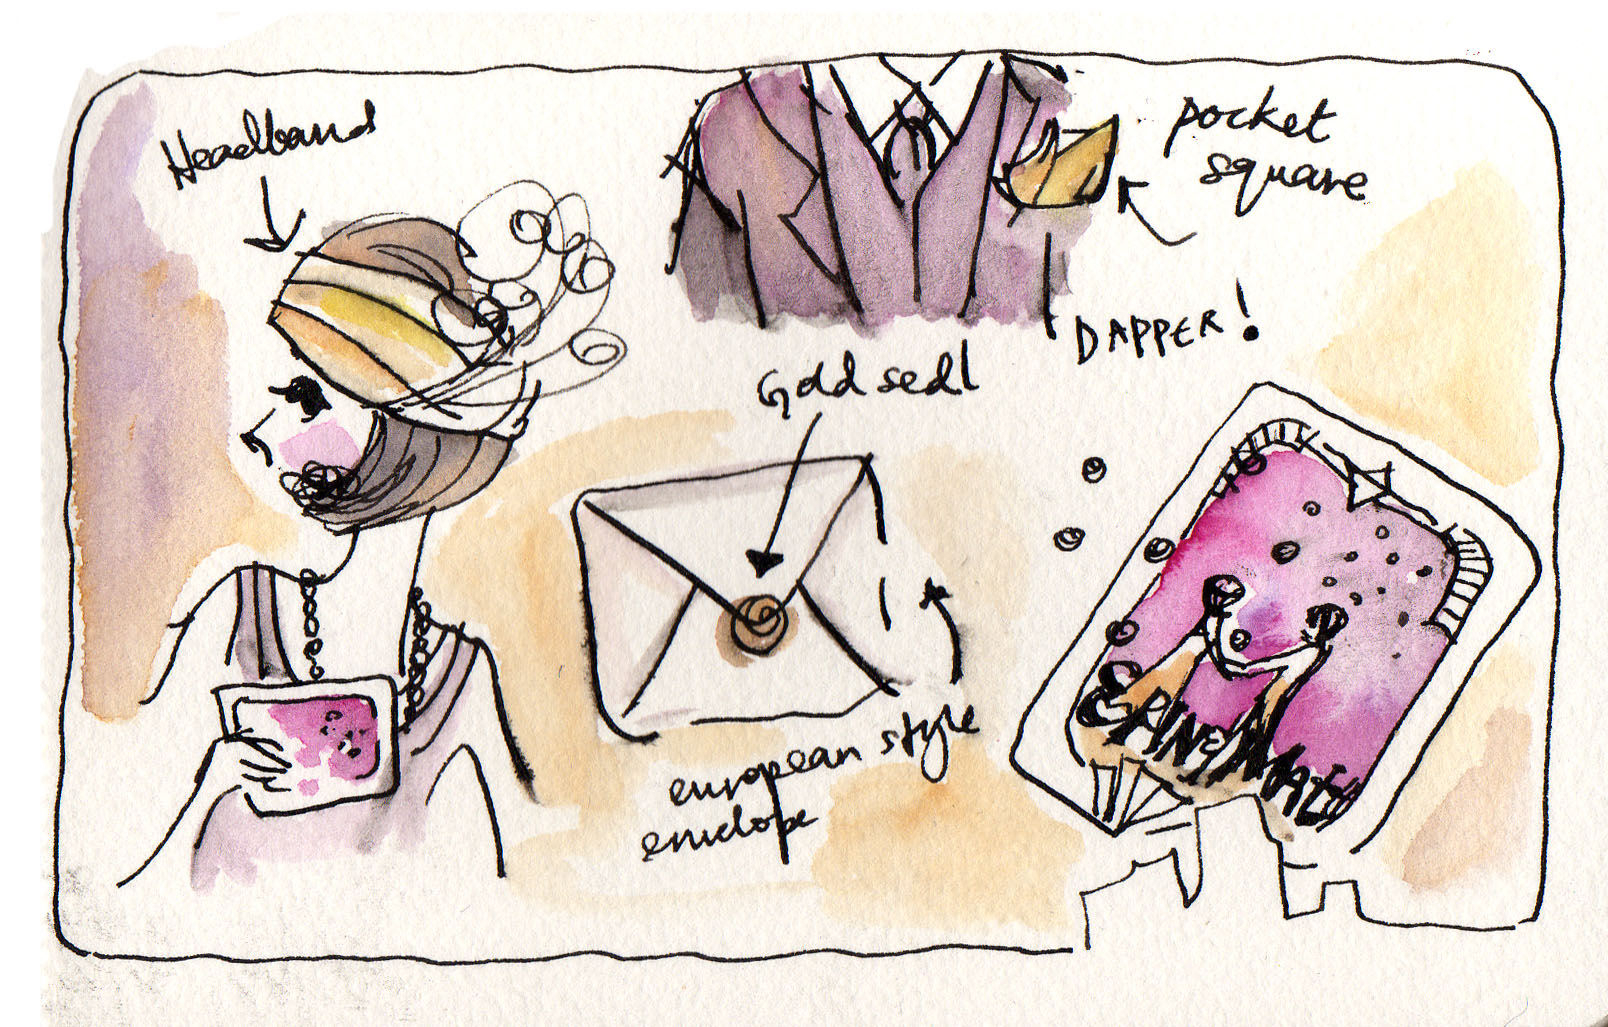 Headband
pocket
square
DAPPER!
Gold seal
european style
envelope